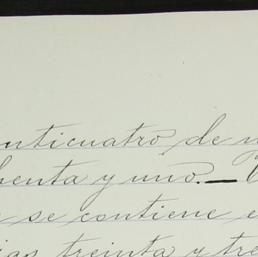 nticuatro de n
henta y uno.—
se contiene e
ias treinta y tre